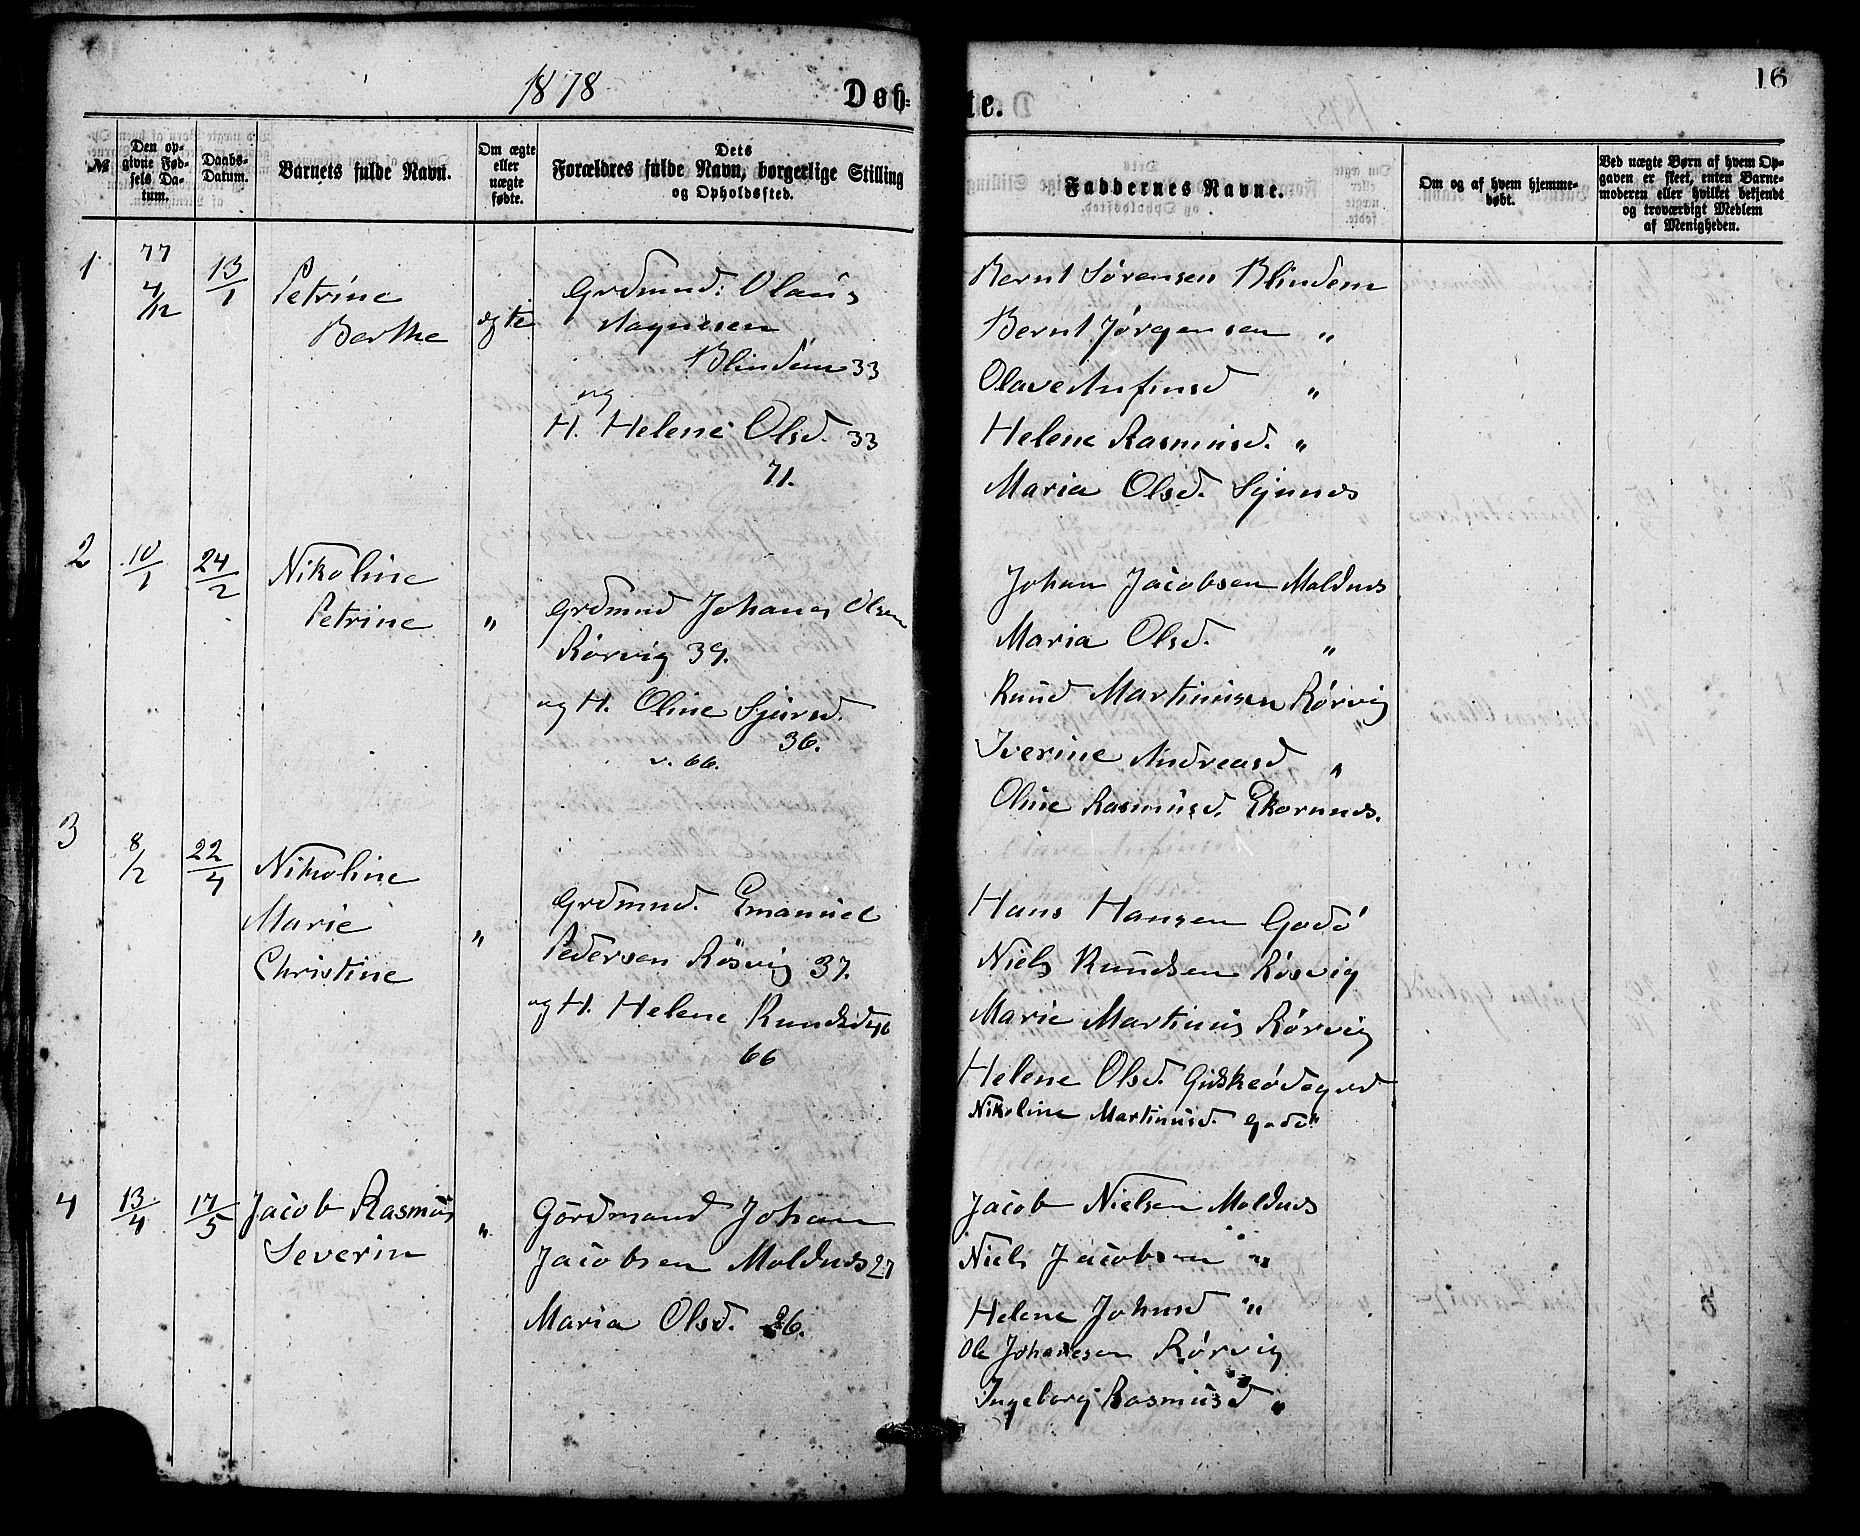 1878
Døb-
te.
16
№
Den op-
givne Fød-
sels Da-
tum.
Daabs-
Datum.
Barnets fulde Navn.
Om ægte
eller
uægte
fødte.
Dets
Forældres fulde Navn, borgerlige Stilling
og Opholdssted.
Faddernes Navne.
Om og af hvem hjemme-
døbt.
Ved uægte Børn af hvem Op-
gaven er skeet, enten Barne-
moderen eller hvilket bekjendt
og troværdigt Medlem
af Menigheden.
1
77
4/12
13/1
Petrine
Berthe
ægte
Grdmnd. Olaus
Magnusen
Blindem 33
og
H. Helene Olsd. 33
71.
Bernt Sørensen Blindem
Bernt Jørgensen "
Olave Anfinsd "
Helene Rasmusd. "
Maria Olsd. Synnes
2
10/1
24/2
Nikoline
Petrine
"
Grdmnd Johanes Olsen
Rørvig 39.
og H. Oline Sjursd.
36.
v. 66.
Johan Jacobsen Moldnes
Maria Olsd. "
Knud Martinusen Rørvig
Iverine Andreasd "
Oline Rasmusd. Ekornnes.
3
8/2
22/4
Nikoline
Marie
Christine
"
Grdmnd. Emanuel
Pedersen Røsvig 37.
og H. Helene Knudsd 46
66
Hans Hansen Godø
Niels Knudsen Røsvig
Marie Martinus Rørvig
Helene Olsd. Gidskeødegrd
Nikoline Martinusd. Godø
4
13/4
17/5
Jacob Rasmus
Severin
"
Gördmand Johan
Jacobsen Moldnes 27
Maria Olsd. 26.
Jacob Nielsen Moldnes
Niels Jacobsen "
Helene Johnsd "
Ole Johanesen Rørvig
Ingeborg Rasmusd "